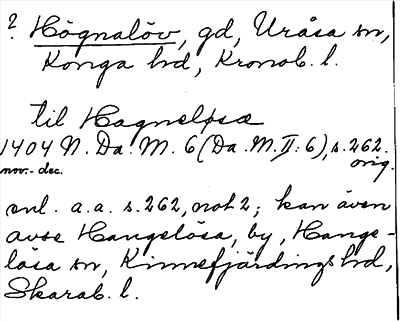 ? Högnalöv, gd, Uråsa sn,
Konga hd, Kronob. l.
til Hagneløsæ
1404 N. Da. M. 6 (Da. M. II: 6), s. 262.
nov.- dec. orig.
enl. a.a. s. 262, not 2; kan även
avse Hangelösa, by, Hange-
lösa sn, Kinnefjärdings hd,
Skarab. l.